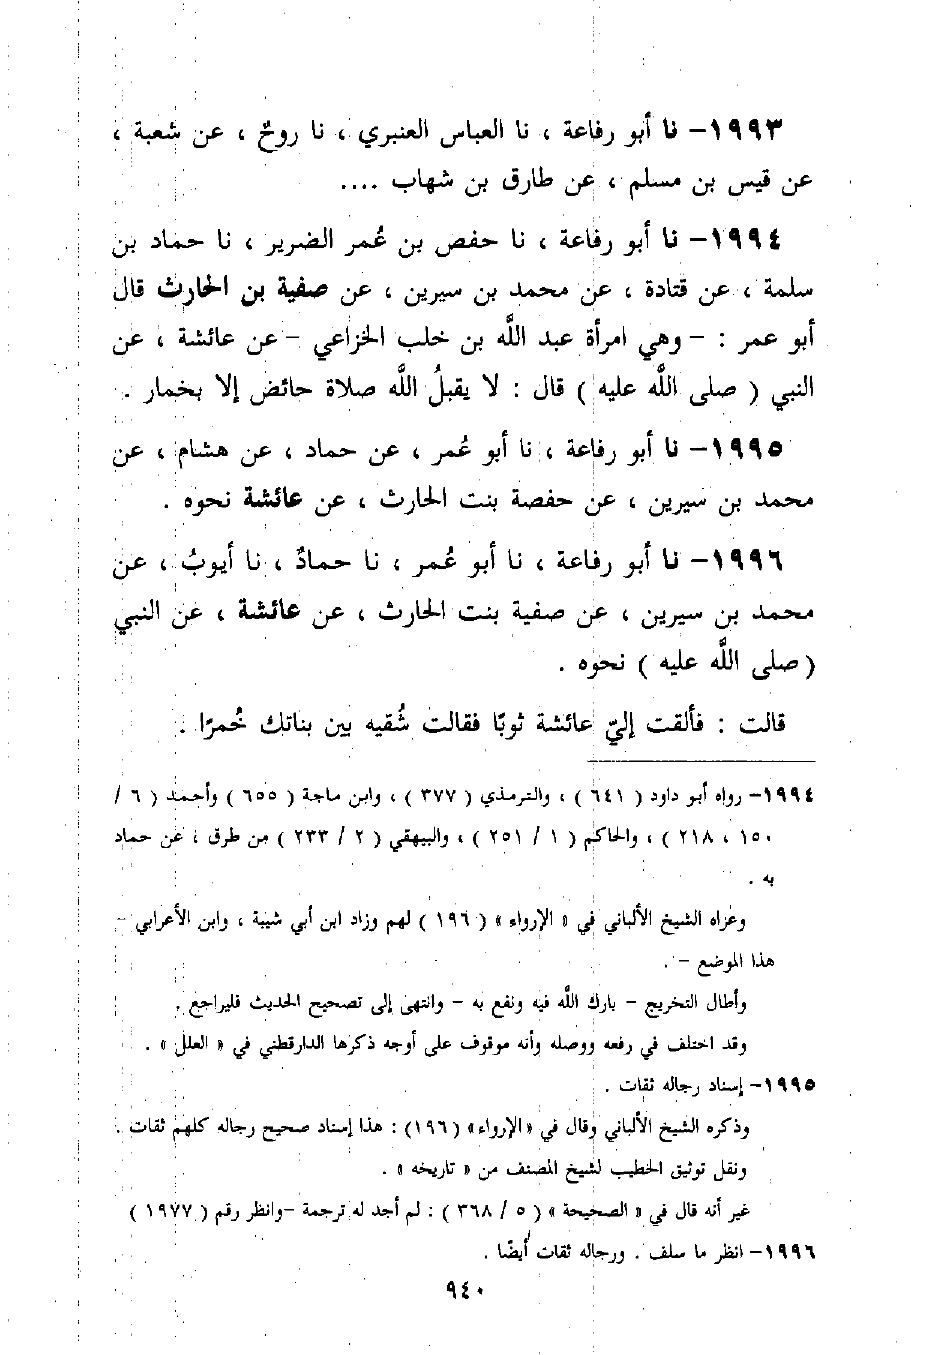 ١٩٩٣- نا أبو رفاعة ، نا العباس العنبري ، نا روحٌ ، عن شعبة ،
عن قيس بن مسلم ، عن طارق بن شهاب ....
١٩٩٤- نا أبو رفاعة ، نا حفص بن عُمر الضرير ، نا حماد بن
سلمة ، عن قتادة ، عن محمد بن سيرين ، عن صفية بن الحارث قال
أبو عمر : - وهي امرأة عبد اللَّه بن خلب الخزاعي - عن عائشة ، عن
النبي ( صلى اللَّه عليه ) قال : لا يقبلُ اللَّه صلاة حائض إلا بخمار .
١٩٩٥- نا أبو رفاعة ، نا أبو عُمر ، عن حماد ، عن هشام ، عن
محمد بن سيرين ، عن حفصة بنت الحارث ، عن عائشة نحوه .
١٩٩٦- نا أبو رفاعة ، نا أبو عُمر ، نا حمادٌ ، نا أيوبُ ، عن
محمد بن سيرين ، عن صفية بنت الحارث ، عن عائشة ، عن النبي
( صلى اللَّه عليه ) نحوه .
قالت : فألقت إليّ عائشة ثوبًا فقالت شُقيه بين بناتك خُمرًا .
١٩٩٤- رواه أبو داود ( ٦٤١ ) ، والترمذي ( ٣٧٧ ) ، وابن ماجة ( ٦٥٥ ) وأحمد ( ٦ /
١٥٠ ، ٢١٨ ) ، والحاكم ( ١ / ٢٥١ ) ، والبيهقي ( ٢ / ٢٣٣ ) من طرق ، عن حماد
به .
وعزاه الشيخ الألباني في « الإرواء » ( ١٩٦ ) لهم وزاد ابن أبي شيبة ، وابن الأعرابي -
هذا الموضع - .
وأطال التخريج - بارك اللَّه فيه ونفع به - وانتهى إلى تصحيح الحديث فليراجع .
وقد اختلف في رفعه ووصله وأنه موقوف على أوجه ذكرها الدارقطني في « العلل » .
١٩٩٥- إسناد رجاله ثقات .
وذكره الشيخ الألباني وقال في «الإرواء» (١٩٦) : هذا إسناد صحيح رجاله كلهم ثقات .
ونقل توثيق الخطيب لشيخ المصنف من « تاريخه » .
غير أنه قال في « الصحيحة » ( ٥ / ٣٦٨ ) : لم أجد له ترجمة -وانظر رقم ( ١٩٧٧ )
١٩٩٦- انظر ما سلف . ورجاله ثقات أيضًا .
٩٤٠